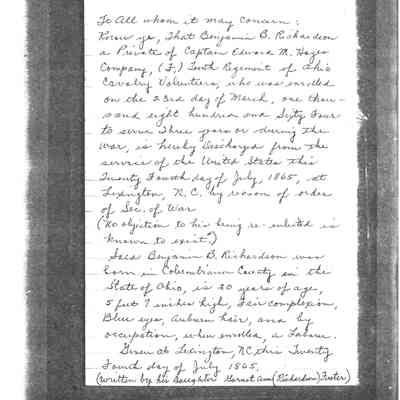 To All whom it may Concern:
Know ye, That Benjamin B. Richardson
a Private of Captain Edward M. Hayes
Company, (F,) Tenth Regiment of Ohio
Cavalry Volunteers, who was enrolled
on the 23rd day of March, one thou-
sand eight hundred and Sixty Four
to serve Three years or during the
war, is hereby Discharged from the
service of the United States this
Twenty Fourth day of July, 1865, at
Lexington, N.C. by reason of order
of Sec. of War
(No objection to his being re-enlisted is
known to exist.")
Said Benjamin B. Richardson was
born in Columbiana County in the
State of Ohio, is 20 years of age,
5 feet 7 inches high, Fair complexion,
Blue eyes, Auburn hair, and by
occupation, when enrolled, a Laborer.
Given at Lexington, NC this Twenty
Fourth day of July 1865.
(written by his daughter Ann (Richardson) Foster)